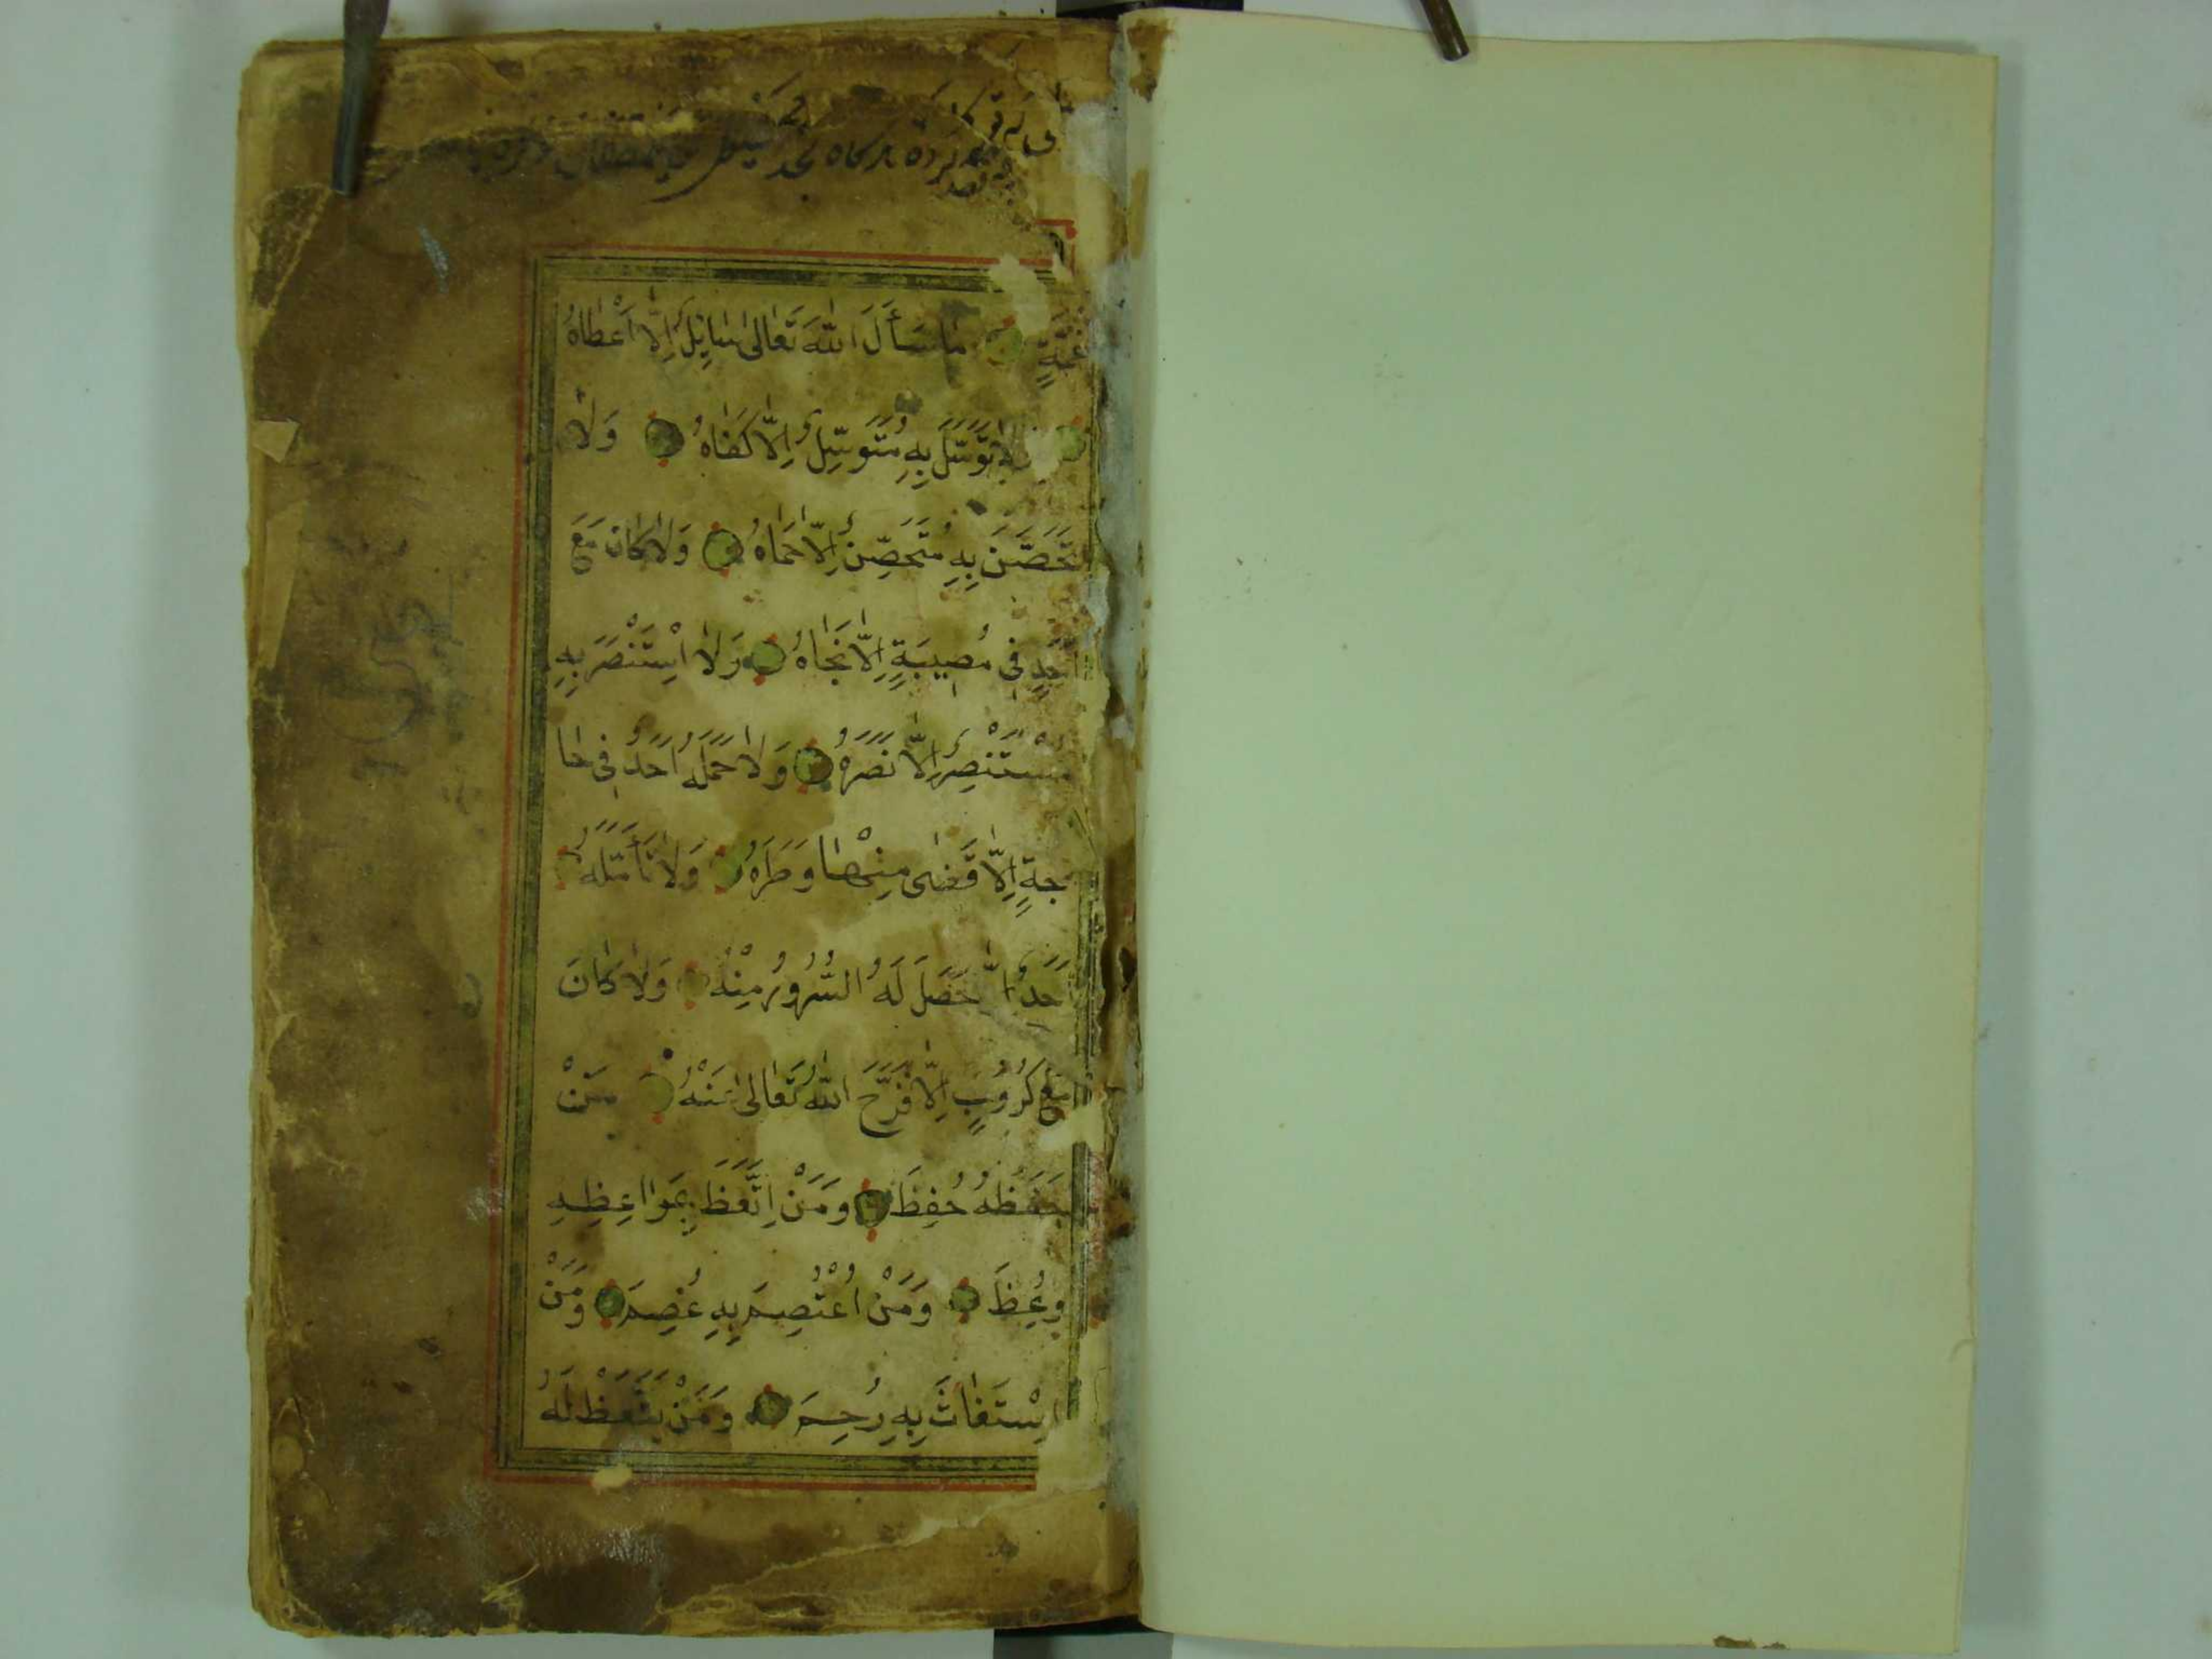 كرده بدركاه
غَيْبَةٍ مٰا سَأَلَ اللّٰهَ تَعٰالىٰ سٰايِلٌ اِلّٰا اَعْطٰاهُ
وَلٰا تَوَسَّلَ بِهِ مُتَوَسِّلٌ اِلّٰا كَفٰاهُ وَلٰا
تَحَصَّنَ بِهِ مُتَحَصِّنٌ اِلّٰا حَمٰاهُ وَلٰا كٰانَ مَعَ
اَحَدٍ فى مُصيبَةٍ اِلّٰا نَجٰاهُ وَلٰا اسْتَنْصَرَ بِهِ
مُسْتَنْصِرٌ اِلّٰا نَصَرَهُ وَلٰا حَمَلَهُ اَحَدٌ فى حٰا
جَةٍ اِلّٰا قَضىٰ مِنْهٰا وَطَرَهُ وَلٰا تَأَمَّلَهُ
اَحَدٌ اِلّٰا حَصَلَ لَهُ السُّرُورُ مِنْهُ وَلٰا كٰانَ
مَعَ كُرُوبٍ اِلّٰا فَرَّحَ اللّٰهُ تَعٰالىٰ عَنْهُ مَنْ
حَفَظَهُ حُفِظَ وَمَنْ اِتَّعَظَ بِمَوٰاعِظِهِ
وُعِظَ وَمَنْ اُعْتُصِمَ بِهِ عُصِمَ وَمَنْ
اِسْتَغٰاثَ بِهِ رُحِمَ وَمَنْ يَتَّعَظْ لَهُ